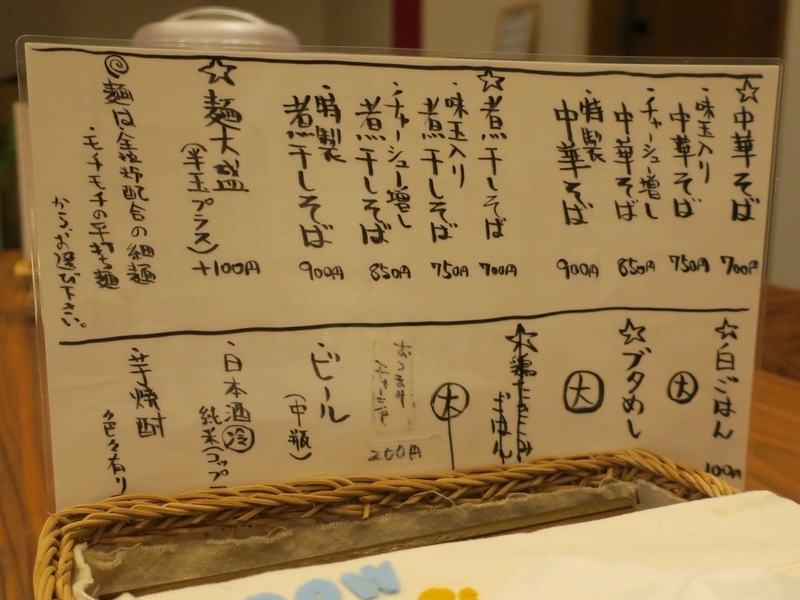 ☆中華そば 700円
・味玉入り中華そば 750円
・チャーシュー増し中華そば 850円
・特製中華そば 900円
☆煮干しそば 700円
・味玉入り煮干しそば 750円
・チャーシュー増し煮干しそば 850円
・特製煮干しそば 900円
☆麺大盛(半玉プラス) +100円
麺は全粒粉配合の細麺
・モチモチの平打ち麺
からお選び下さい。
☆白ごはん 100円
大
☆ブタめし
大
大
おつまみチャーシュー 200円
・ビール(中瓶)
・日本酒 冷 純米(コップ
・芋焼酎 色々有り
DOW